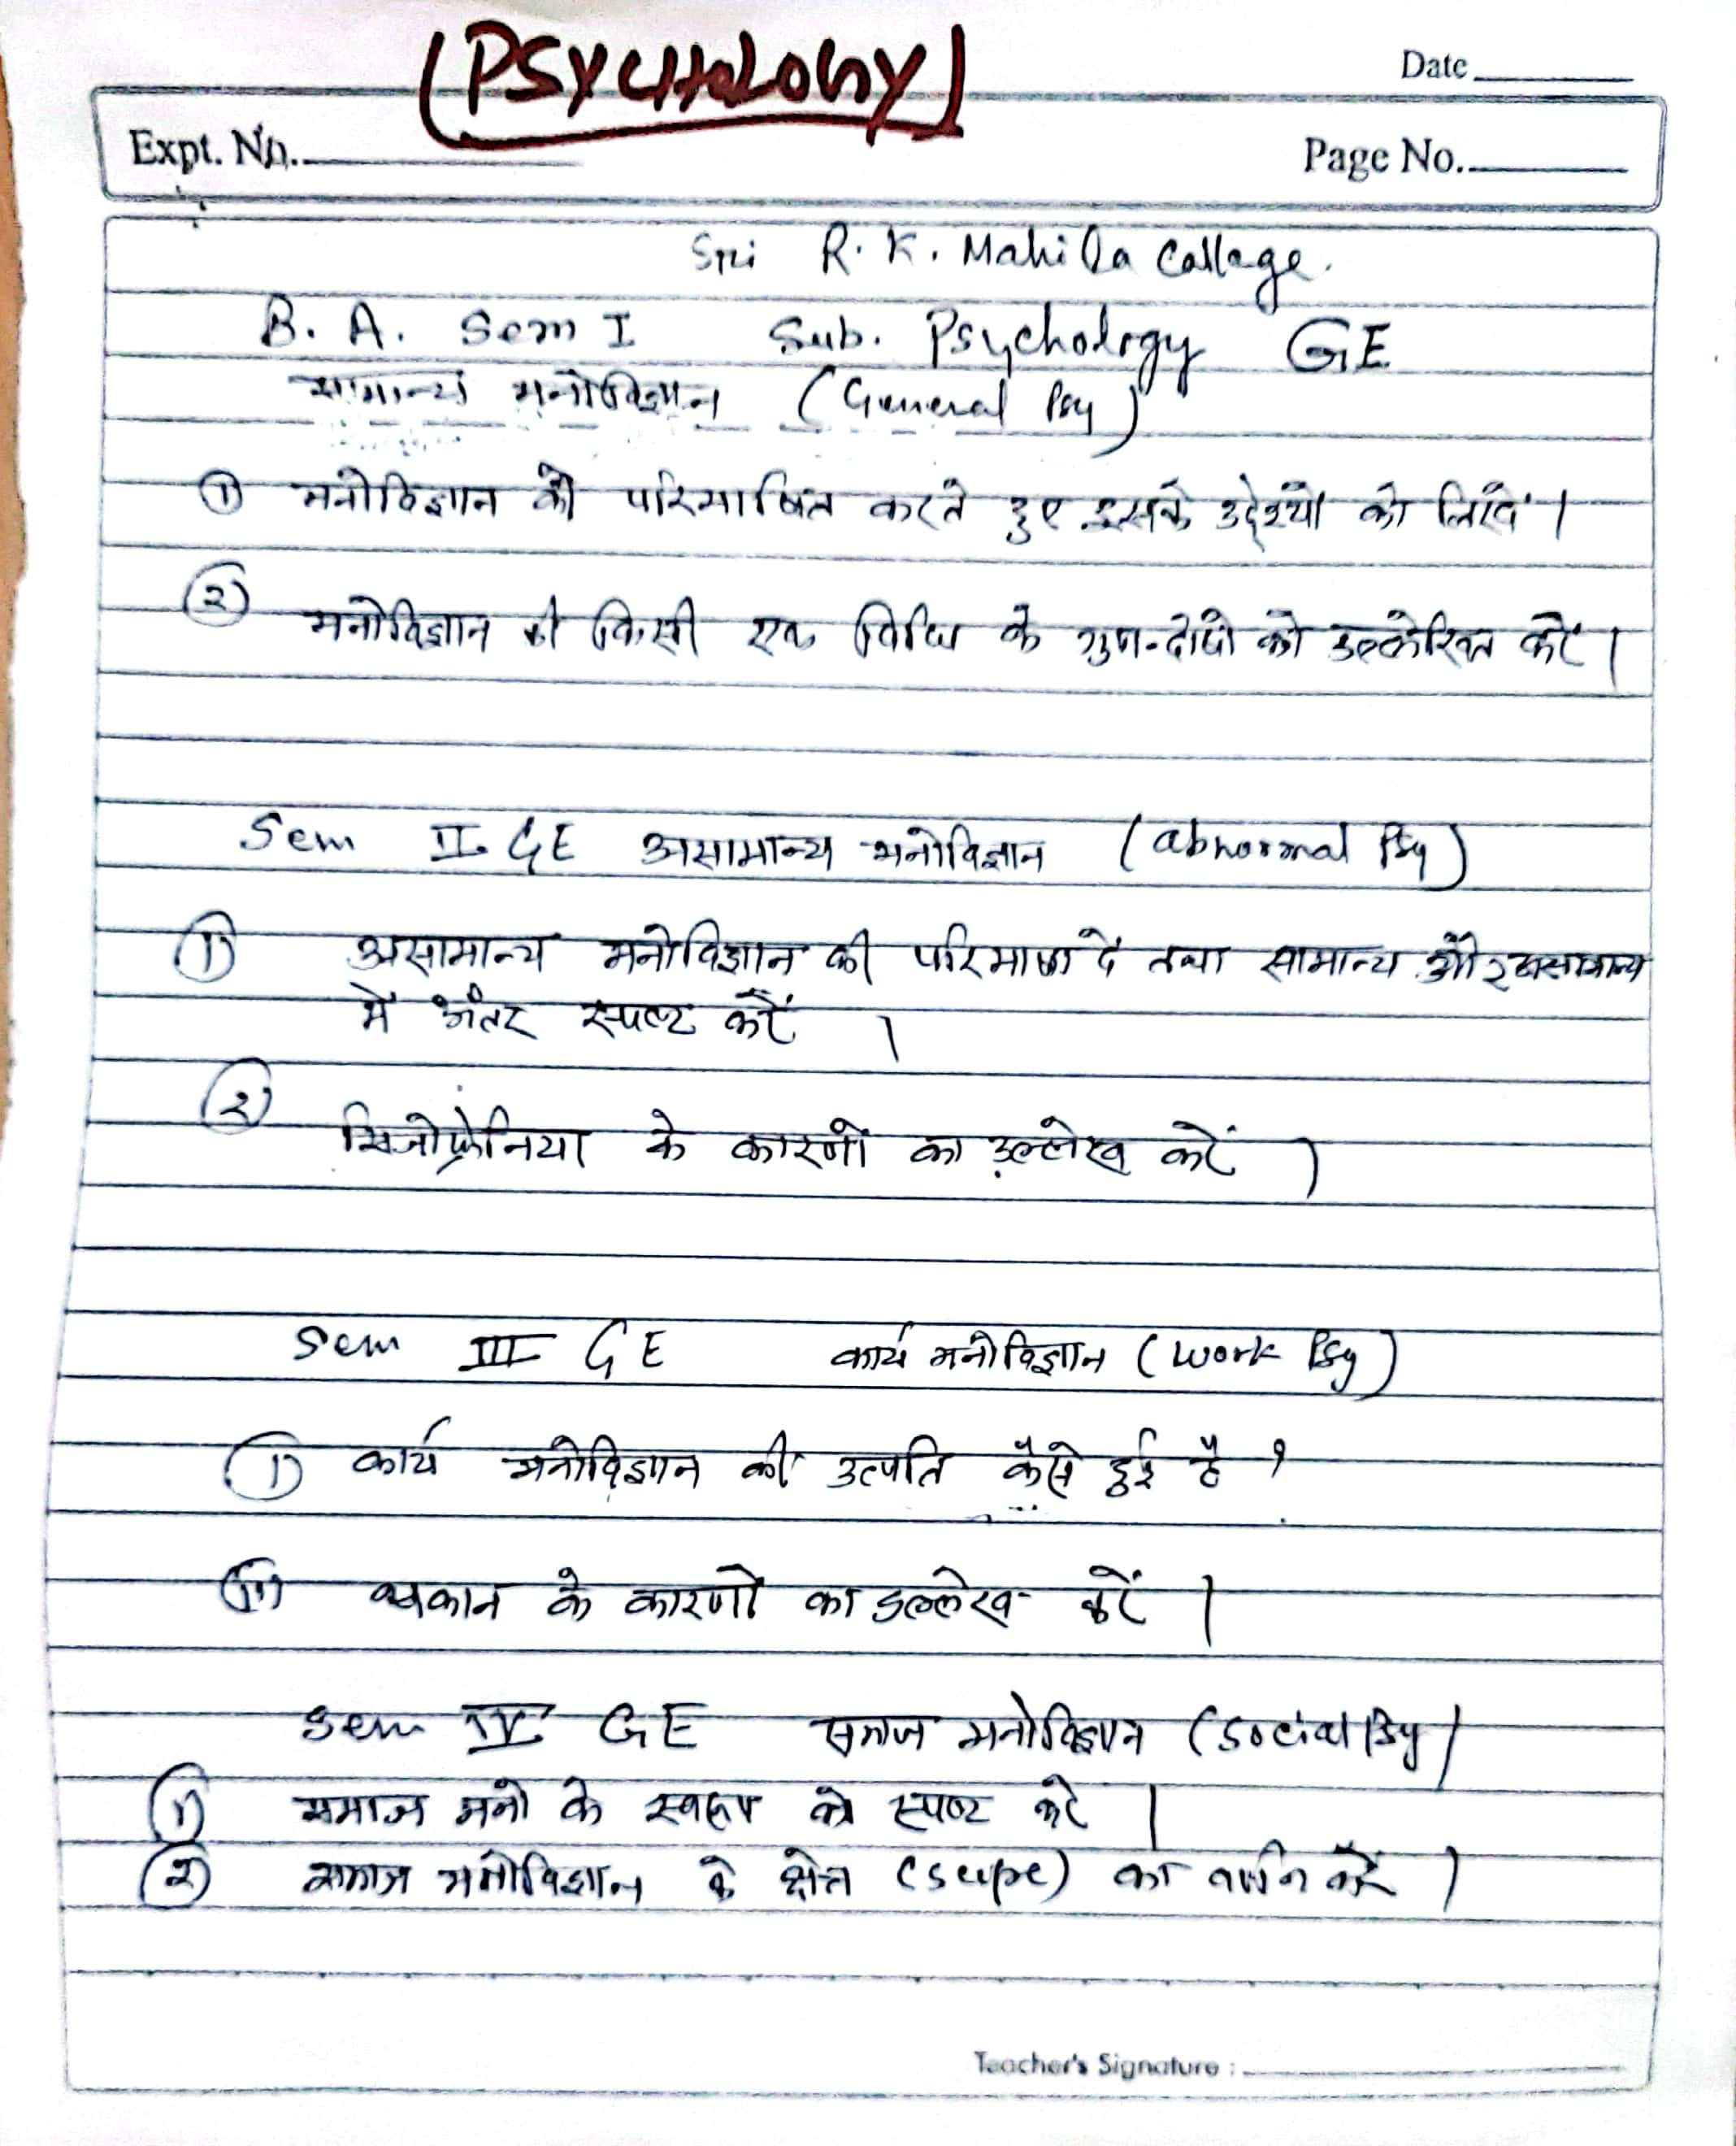 (PSYCHOLOGY)
Date
Expt. No.
Page No.
Sri R. K. Mahila Collage.
B. A. Sem I Sub. Psychology GE
सामान्य मनोविज्ञान (General Psy)
① मनोविज्ञान को परिभाषित करते हुए इसके उद्देश्यों को लिखें।
② मनोविज्ञान की किसी एक विधि के गुण-दोषों को उल्लेखित करें।
Sem II GE असामान्य मनोविज्ञान (abnormal Psy)
① असामान्य मनोविज्ञान की परिभाषा दें तथा सामान्य और असामान्य
में अंतर स्पष्ट करें।
② सिजोफ्रेनिया के कारणों का उल्लेख करें।
Sem III GE कार्य मनोविज्ञान (work Psy)
① कार्य मनोविज्ञान की उत्पति कैसे हुई है ?
(ii) थकान के कारणों का उल्लेख करें।
Sem IV GE समाज मनोविज्ञान (Social Psy)
① समाज मनो के स्वरूप को स्पष्ट करें।
② समाज मनोविज्ञान के क्षेत्र (scope) का वर्णन करें।
Teacher's Signature :